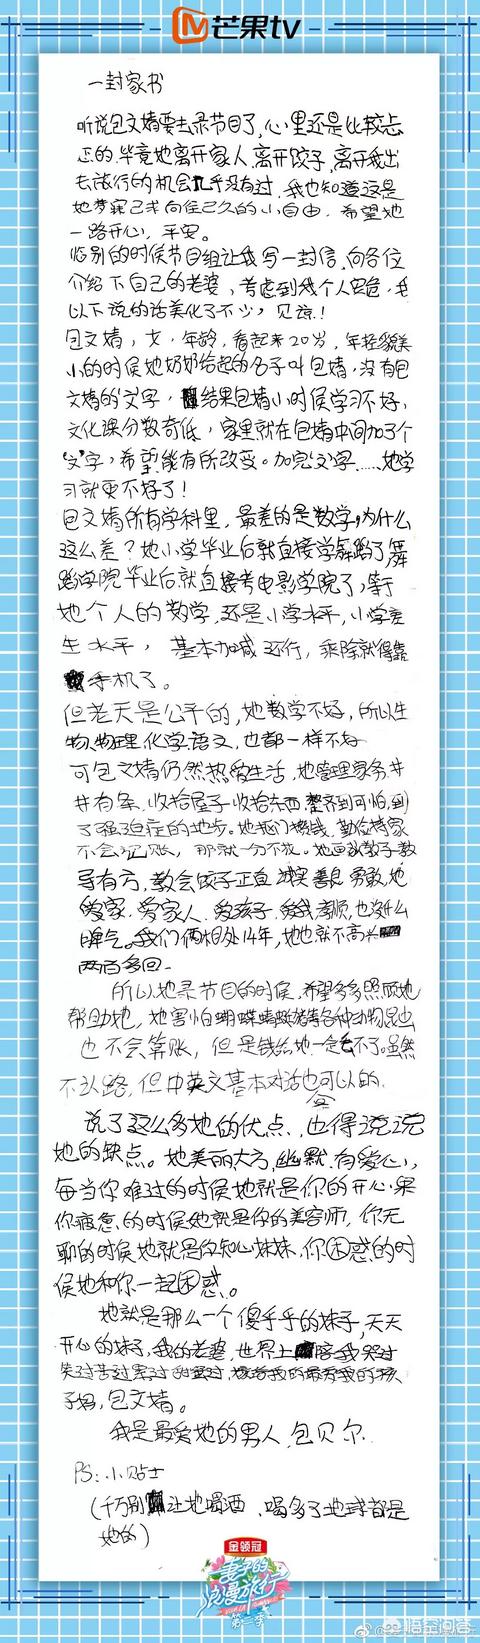 芒果tv
一封家书
听说包文婧要去录节目了,心里还是比较忐
忑的.毕竟她离开家人.离开饺子,离开我出
去旅行的机会几乎没有过.我也知道这是
她梦寐已求向往已久的小自由.希望她
一路开心,平安。
临别的时候节目组让我写一封信,向各位
介绍下自己的老婆,考虑到我个人安危,我
以下说的话美化了不少,见谅!
包文婧,女,年龄,看起来20岁,年轻貌美
小的时候她奶奶给起的名子叫包婧,没有包
文婧的"文"字,结果包婧小时候学习不好,
文化课分数奇低,家里就在包婧中间加了个
"文"字,希望能有所改变。加完文字……她学
习就更不好了!
包文婧所有学科里,最差的是数学,为什么
这么差?她小学毕业后就直接学舞蹈了舞
蹈学院毕业后就直接考电影学院了,等于
她个人的数学,还是小学水平,小学差
生水平,基本加减还行,乘除就得靠
手机了。
但老天是公平的,她数学不好,所以生
物,物理,化学,语文,也都一样不好
可包文婧仍然热爱生活,她管理家务井
井有条.收拾屋子收拾东西整齐到可怕,到
了强迫症的地步。她抠门攒钱,勤俭持家
不会记账,那就一分不花。她画画教子教
导有方,教会饺子正直诚实善良勇敢,她
爱家.爱家人.爱孩子.爱我孝顺,也没什么
脾气。我们俩相处14年,她也就不高兴
两百多回.
所以她录节目的时候.希望多多照顾她
帮助她,她害怕蝴蝶蟑螂等各种动物昆虫
也不会算账,但是钱给她一定丢不了.虽然
不认路,但中英文基本对话也会可以的.
说了这么多她的优点,也得说说
她的缺点。她美丽大方,幽默.有爱心,
每当你难过的时候她就是你的开心果
你疲惫的时候她就是你的美容师,你无
聊的时候她就是你知心妹妹,你困惑的时
候她和你一起困惑。
她就是那么一个傻乎乎的妹子,天天
开心的妹子,我的老婆,世界上陪我哭过
笑过苦过累过甜蜜过,我的最爱我的孩
子妈,包文婧。
我是最爱她的男人.包贝尔.
PS:小贴士
(千万别让她喝酒.喝多了地球都是
她的)
金领冠
妻子的
浪漫旅行
第二季
悟空问答